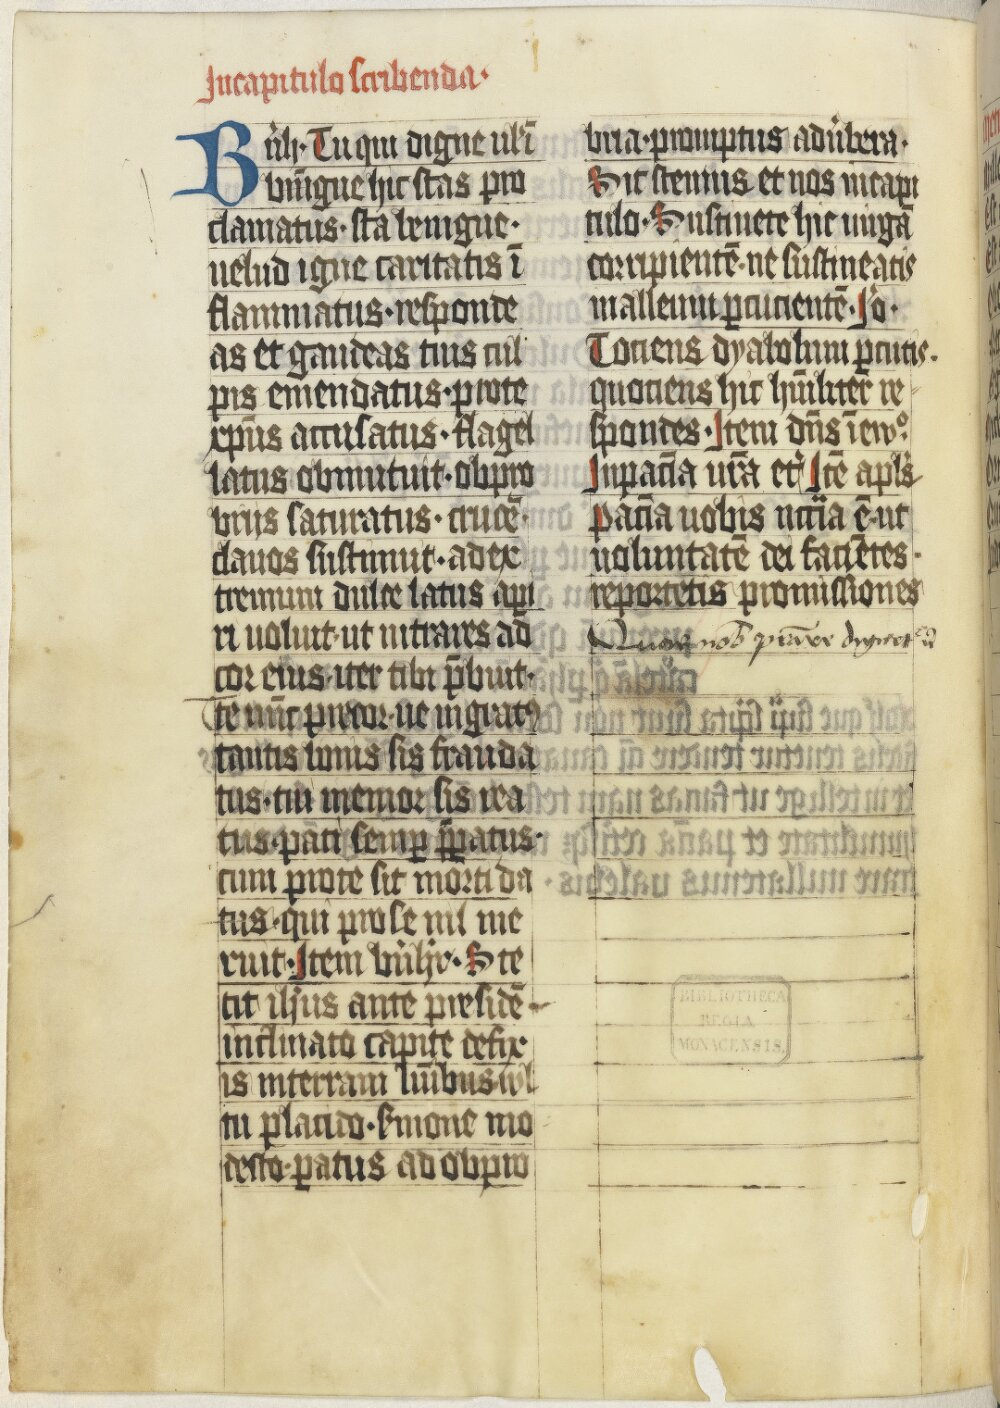 Incapitulo scribenda·
B er̄h· Tu qui digne ubi
benigne hic stas pro
clamatus· sta benigne·
uelud igne caritatis ī
flammatus· responde
as et gaudeas tuis cul
pis emendatus· pro te
xp̄us accusatus· flagel
latus obmutuit· obpro
briis saturatus· crucē·
clauos sustinuit· ad ex
tremum dulce latus api
ri uoluit· ut intrares ad
cor eius· iter tibi p̄buit·
Te nūc precor· ne ingratꝰ
tantis bonis sis frauda
tus· tui memor sis rea
tus· pati semp p̄patus·
cum pro te sit morti da
tus· qui pro se nil me
ruit· Item b̄nh̄· Ste
tit ihus ante presidē
inclinato capite defix
is in terram lūibus· uul
tu placido· s̄mone mo
desto· patus ad obpro
bria· promptus ad ūbera·
Sic stemus et nos in capi
tulo· Sustinete hic uirgā
corripientē· ne sustineatis
malleum p̄cucientē· Jo·
Tociens dyabolum p̄cutis·
quociens hic hūilitēr re
spondes· Item dn̄s
In paciā ur̄a etc̄ Itē apl̄s
paciā uobis nccīa ē· ut
uoluntatē dei faciētes·
reportetis promissiones
BIBLIOTHECA
REGIA
MONACENSIS.